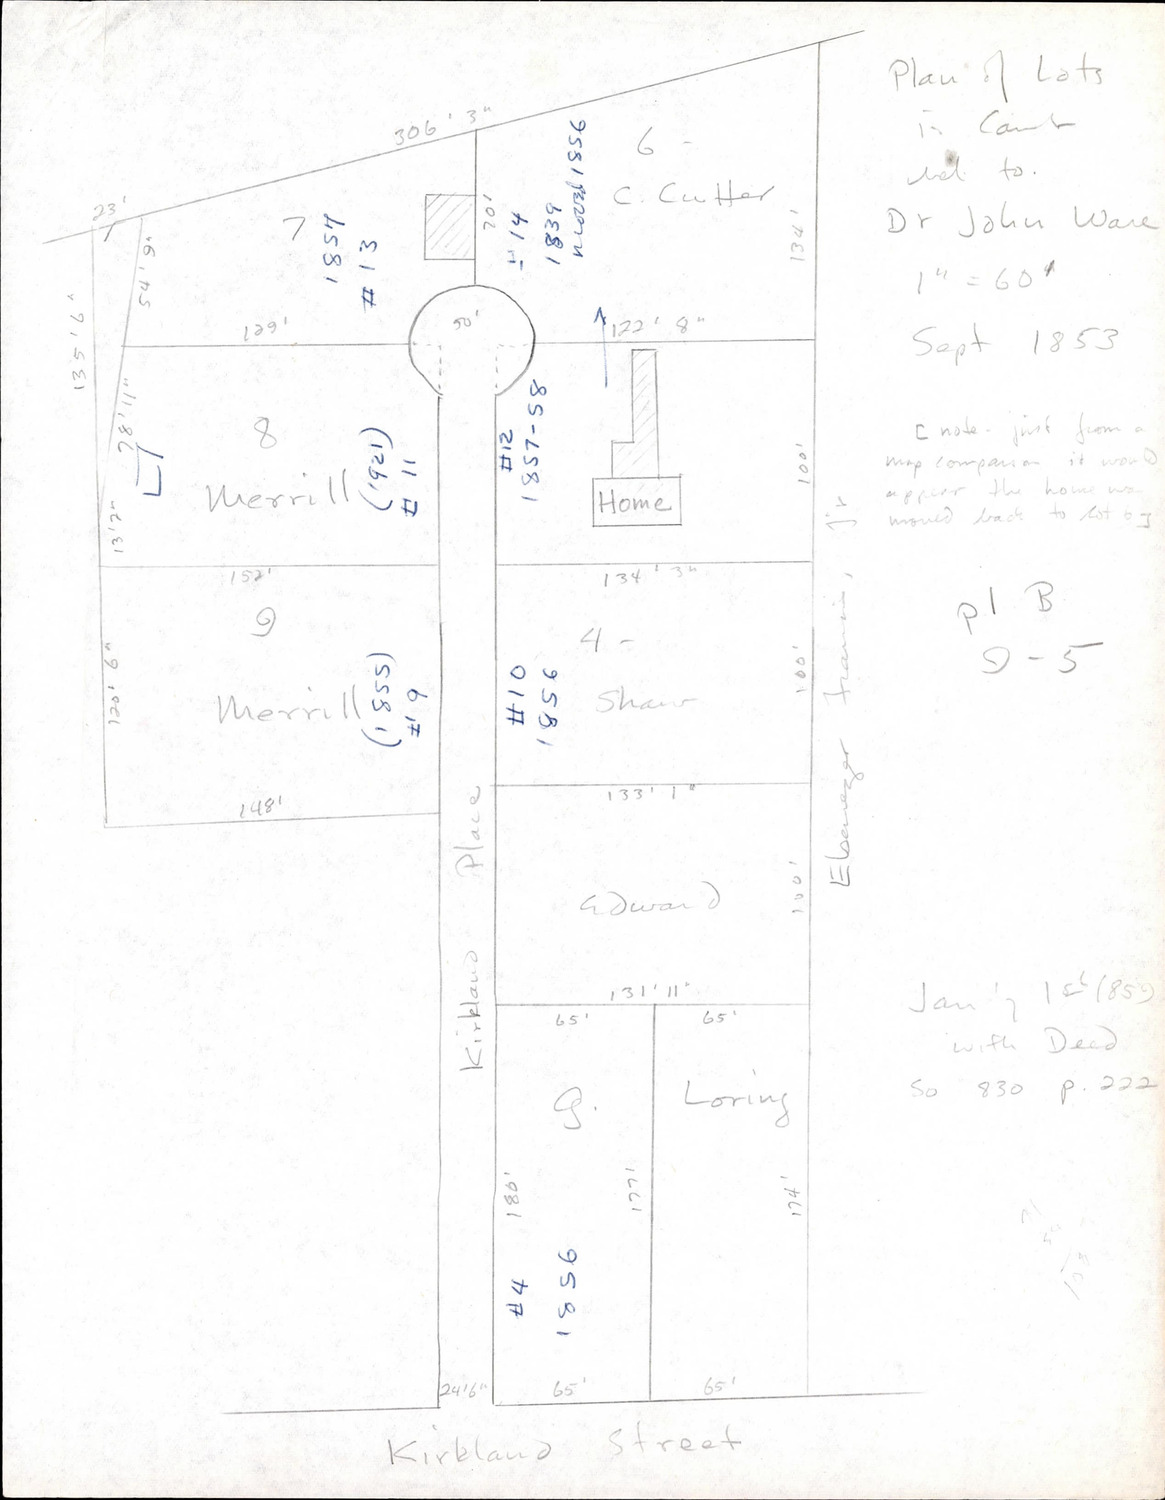 Plan of Lots
in Camb
bel to.
Dr John Ware
1" = 60'
Sept 1853
[ note - just from a
map comparison it would
appear the home was
moved back to lot 6 ]
pl B
9-5
Jan'y 1st 1859
with Deed
So 830 p. 222
306' 3"
23'
7
1857
#13
70'
#14
1839
moved 1856
6 -
C. Cutter
134'
54' 9"
135' 6"
129'
50'
122' 8"
78' 11"
8
Merrill
(1921)
#11
#12
1857-58
Home
100'
13' 2"
152'
134' 3"
9
Merrill
(1855)
#9
120' 6"
148'
4 -
Shaw
#10
1856
100'
133' 1"
Edward
100'
131' 11"
65'
65'
G.
Loring
180'
177'
174'
#4
1856
24'6"
65'
65'
Kirkland Place
Ebenezer Francis, Jr
Kirkland Street